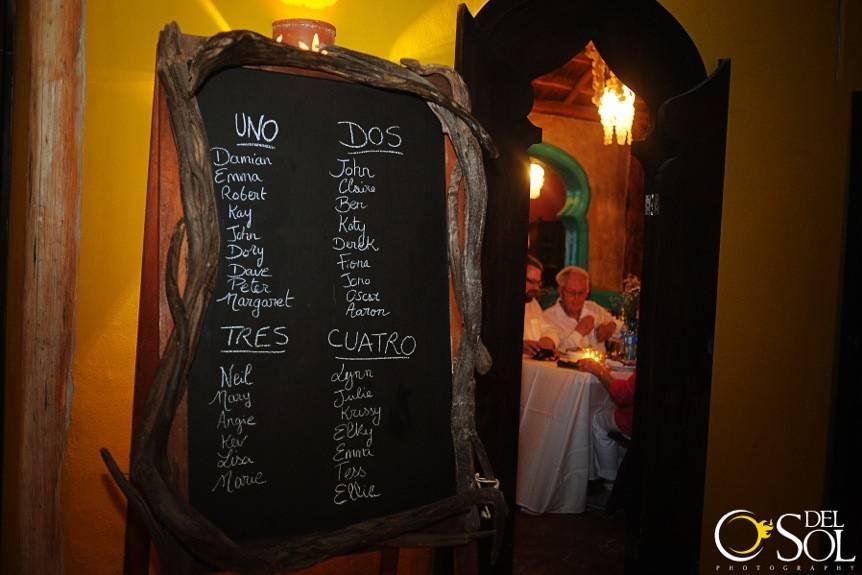 UNO
Damian
Emma
Robert
Kay
John
Dory
Dave
Peter
Margaret
DOS
John
Claire
Ben
Katy
Derek
Fiona
Jono
Oscar
Aaron
TRES
Neil
Mary
Angie
Kev
Lisa
Marie
CUATRO
Lynn
Julie
Krissy
Elky
Emma
Tess
Ellie
DEL
SOL
PHOTOGRAPHY